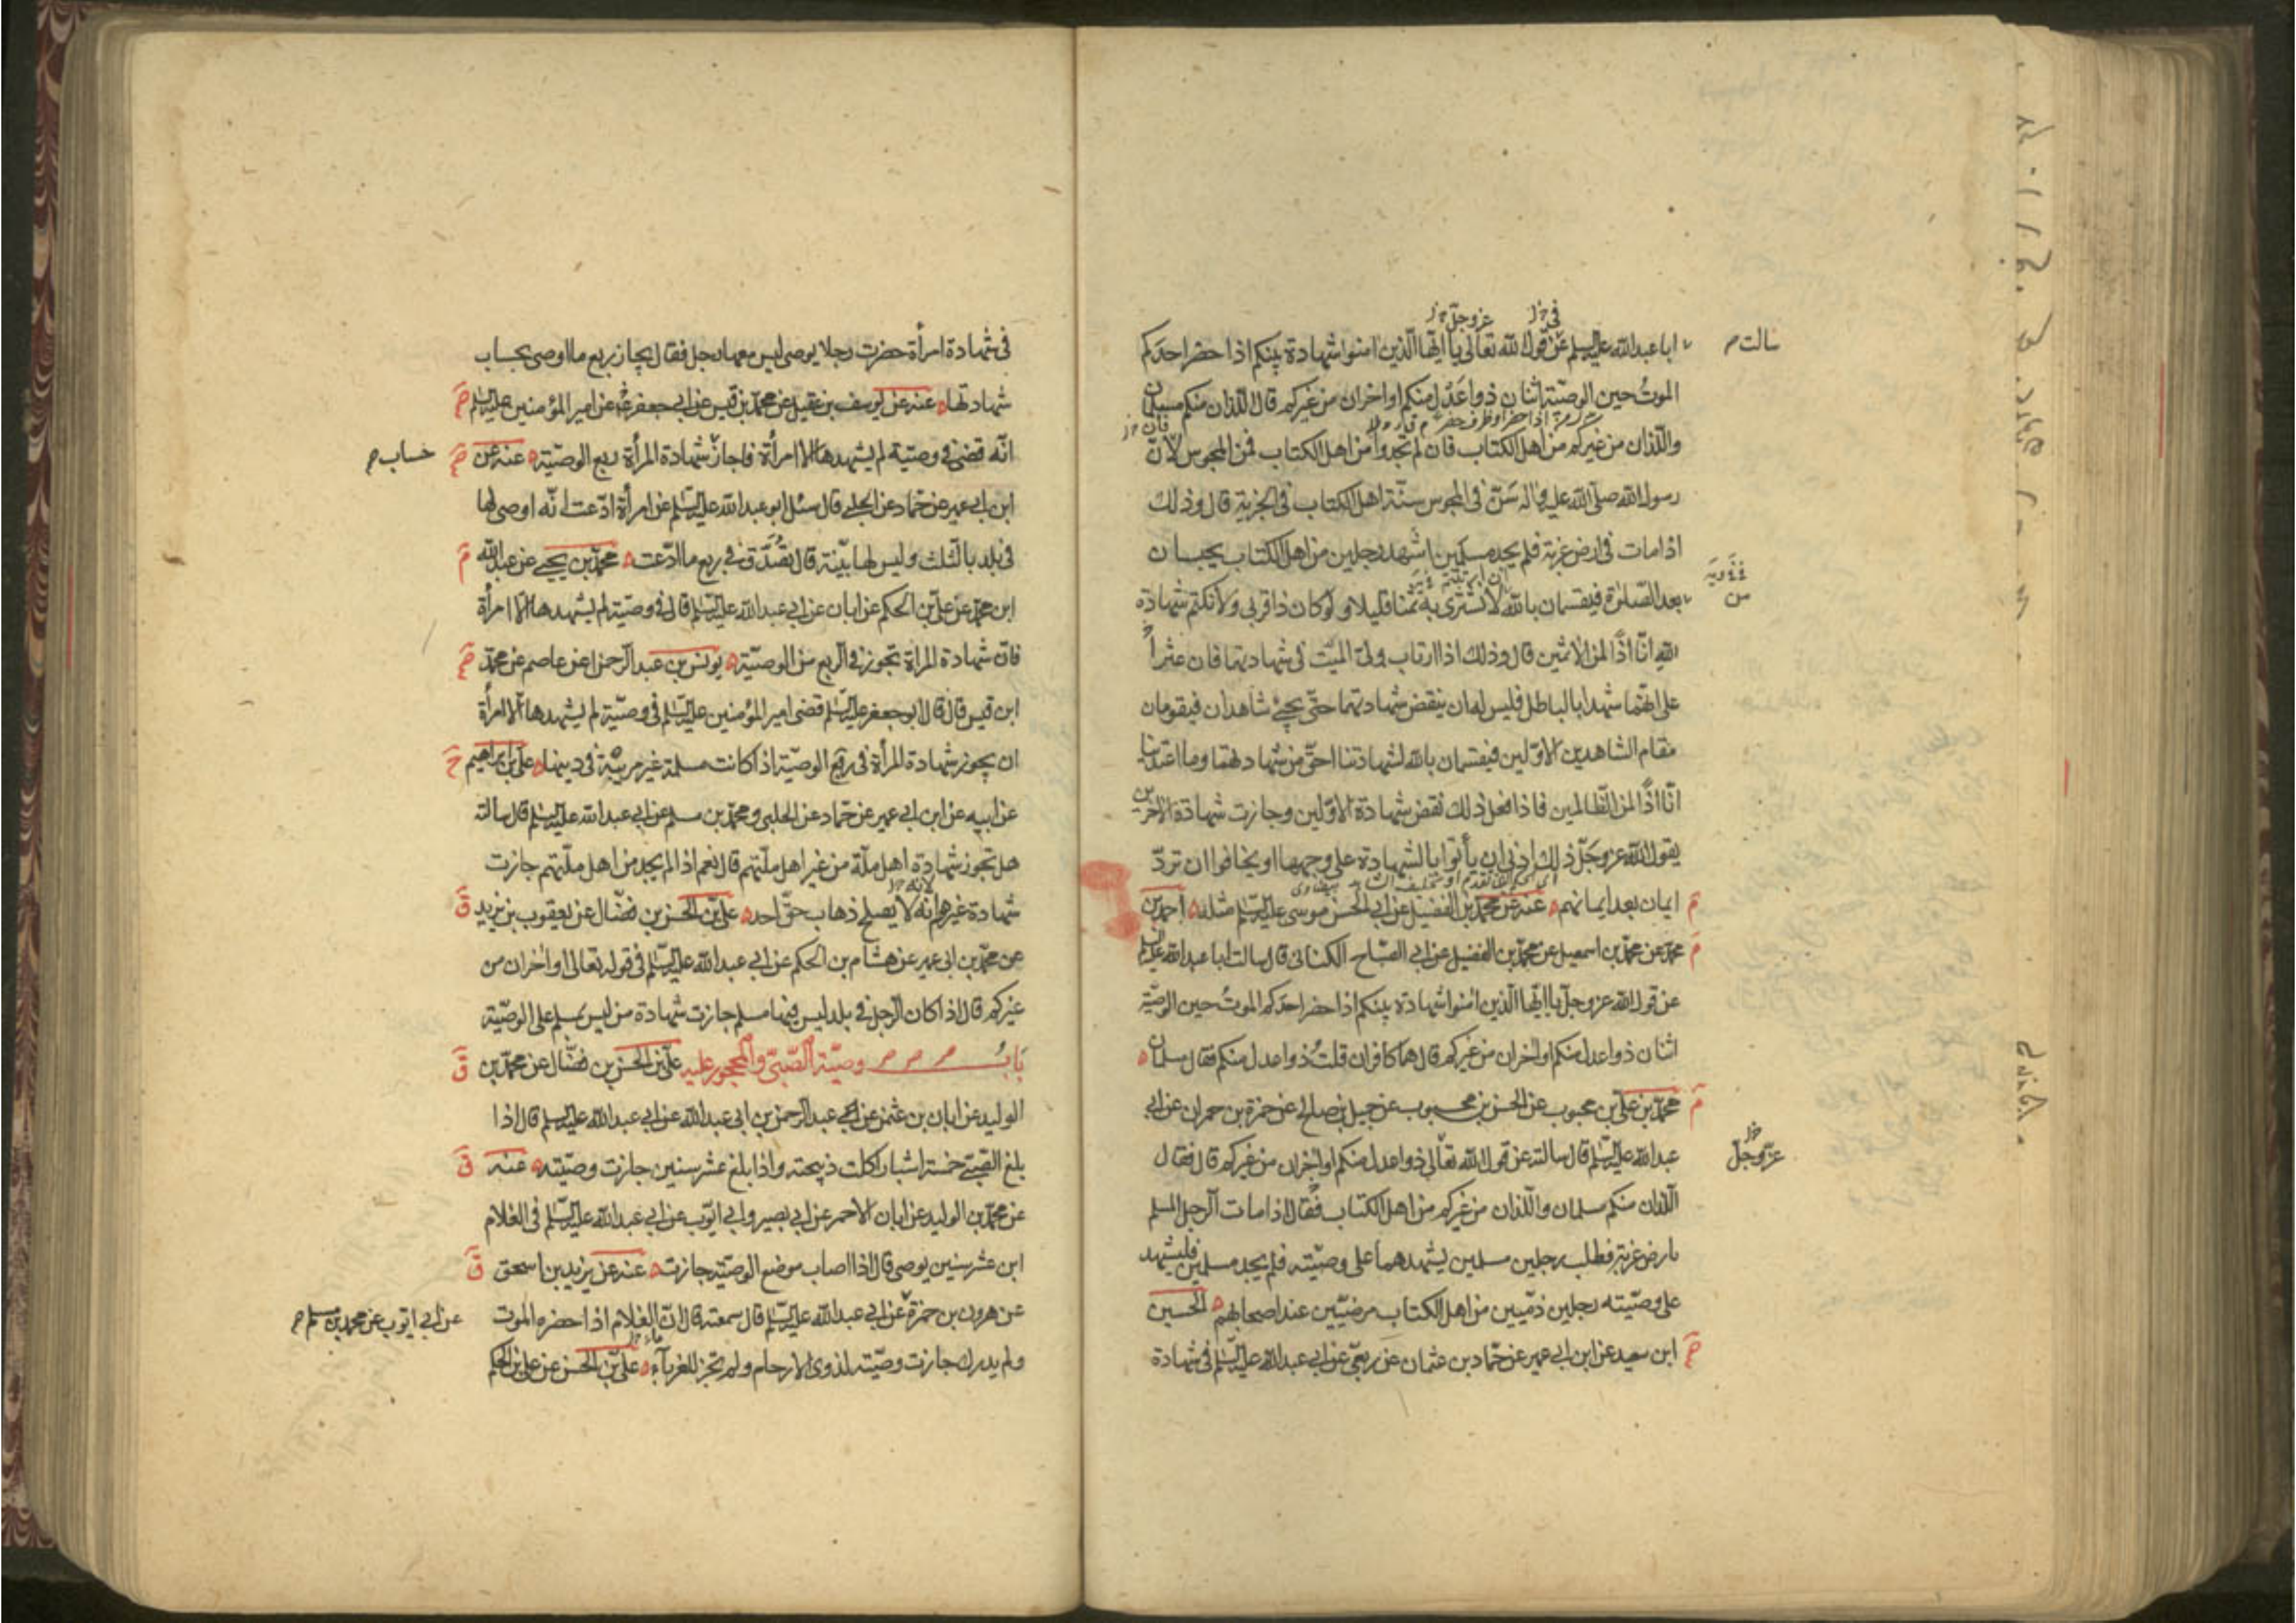 سالت
ابا عبد الله عليه السلم عن قول الله تعالى يا ايها الذين امنوا شهادة بينكم اذا حضر احدكم
الموت حين الوصية اثنان ذوا عدل منكم او اخران من غيركم قال اللذان منكم مسلمان
واللذان من غيركم من اهل الكتاب فان لم تجدوا من اهل الكتاب فمن المجوس لان
رسول الله صلى الله عليه واله سن في المجوس سنة اهل الكتاب في الجزية قال وذلك
اذا مات في ارض غربة فلم يجد مسلمين اشهد رجلين من اهل الكتاب يحبسان
بعد الصلوة فيقسمان بالله لا نشترى به ثمنا قليلا ولو كان ذا قربى ولا نكتم شهادة
الله انا اذا لمن الاثمين قال وذلك اذا ارتاب ولى الميت في شهادتهما فان عثر
على انهما شهدا بالباطل فليس له ان ينقض شهادتهما حتى يجئ شاهدان فيقومان
مقام الشاهدين الاولين فيقسمان بالله لشهادتنا احق من شهادتهما وما اعتدينا
انا اذا لمن الظالمين فاذا فعل ذلك نقض شهادة الاولين وجازت شهادة الاخرين
يقول الله عز وجل ذلك ادنى ان يأتوا بالشهادة على وجهها او يخافوا ان ترد
ايمان بعد ايمانهم عنه عن محمد بن الفضيل عن ابي الحسن موسى عليه السلم مثله احمد بن
محمد عن محمد بن اسمعيل عن محمد بن الفضيل عن ابي الصباح الكناني قال سالت ابا عبد الله عليه السلم
عن قول الله عز وجل يا ايها الذين امنوا شهادة بينكم اذا حضر احدكم الموت حين الوصية
اثنان ذوا عدل منكم او اخران من غيركم قال هما كافران قلت ذوا عدل منكم فقال مسلمان
محمد بن علي بن محبوب عن الحسن بن محبوب عن جميل بن صالح عن حمزة بن حمران عن ابي
عبد الله عليه السلم قال سالته عن قول الله تعالى ذوا عدل منكم او اخران من غيركم قال فقال
عز وجل
اللذان منكم مسلمان واللذان من غيركم من اهل الكتاب فقال اذا مات الرجل المسلم
بارض غربة فطلب رجلين مسلمين يشهدهما على وصيته فلم يجد مسلمين فليشهد
على وصيته رجلين ذميين من اهل الكتاب مرضيين عند اصحابهم الحسين
ابن سعيد عن ابن ابي عمير عن حماد بن عثمان عن ربعي عن ابي عبد الله عليه السلم في شهادة
في شهادة امرأة حضرت رجلا يوصى ليس معها رجل فقال يجاز ربع ما اوصى بحساب
شهادتها عنه عن يوسف بن عقيل عن محمد بن قيس عن ابي جعفر عن امير المؤمنين عليه السلم
انه قضى في وصية لم يشهدها الا امرأة فاجاز شهادة المرأة ربع الوصية عنه عن
حساب
ابن ابي عمير عن حماد عن الحلبي قال سئل ابو عبد الله عليه السلم عن امرأة ادعت انه اوصى لها
في بلد بالثلث وليس لها بينة قال تصدق في ربع ما ادعت محمد بن يحيى عن عبد الله
ابن محمد عن علي بن الحكم عن ابان عن ابي عبد الله عليه السلم قال في وصية لم يشهدها الا امرأة
فان شهادة المراة تجوز في الربع من الوصية يونس بن عبد الرحمن عن عاصم عن محمد
ابن قيس قال قال ابو جعفر عليه السلم قضى امير المؤمنين عليه السلم في وصية لم يشهدها الا امرأة
ان يجوز شهادة المرأة في ربع الوصية اذا كانت مسلمة غير مريبة في دينها علي بن ابراهيم
عن ابيه عن ابن ابي عمير عن حماد عن الحلبي ومحمد بن مسلم عن ابي عبد الله عليه السلم قال سالته
هل تجوز شهادة اهل ملة من غير اهل ملتهم قال نعم اذا لم يجد من اهل ملتهم جازت
شهادة غيرهم انه لا يصلح ذهاب حق احد علي بن الحسن بن فضال عن يعقوب بن يزيد
عن محمد بن ابي عمير عن هشام بن الحكم عن ابي عبد الله عليه السلم في قوله تعالى او اخران من
غيركم قال اذا كان الرجل في بلد ليس فيها مسلم جازت شهادة من ليس بمسلم على الوصية
باب وصية الصبى والمحجور عليه علي بن الحسن بن فضال عن محمد بن
الوليد عن ابان بن عثمن عن عبد الرحمن بن ابي عبد الله عن ابي عبد الله عليه السلم قال اذا
بلغ الصبى خمسة اشبار اكلت ذبيحته واذا بلغ عشر سنين جازت وصيته عنه
عن محمد بن الوليد عن ابان الاحمر عن ابي بصير وابي ايوب عن ابي عبد الله عليه السلم في الغلام
ابن عشر سنين يوصى قال اذا اصاب موضع الوصية جازت عنه عن يزيد بن اسحق
عن هرون بن حمزة عن ابي عبد الله عليه السلم قال سمعته قال ان الغلام اذا حضره الموت
عن ابي ايوب عن محمد بن مسلم
ولم يدرك جازت وصيته لذوى الارحام ولم تجز للغرباء علي بن الحسن عن علي بن الحكم